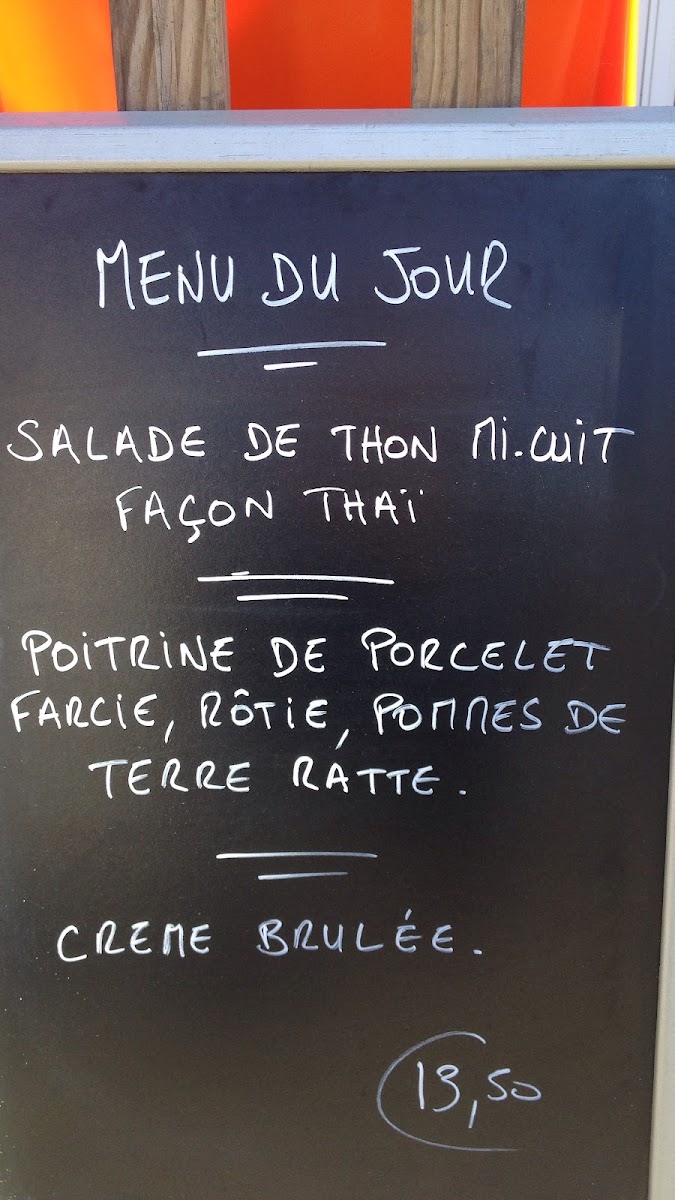 MENU DU JOUR
SALADE DE THON MI-CUIT
FAÇON THAÏ
POITRINE DE PORCELET
FARCIE, RÔTIE, POMMES DE
TERRE RATTE.
CREME BRULÉE.
13,50